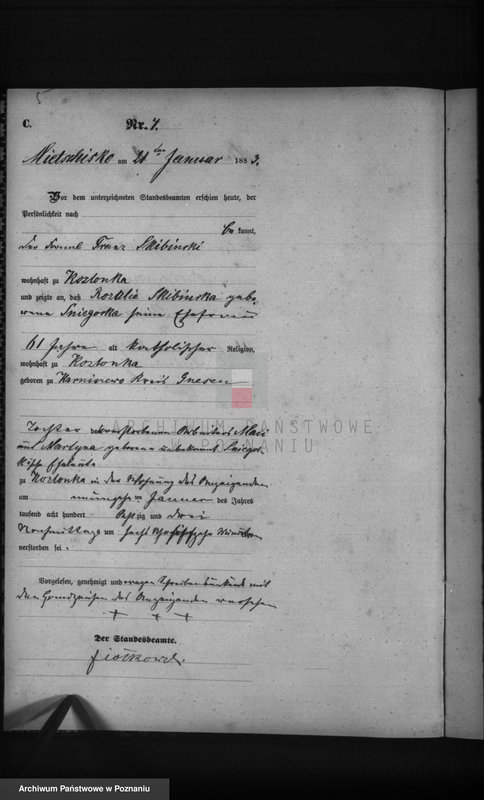 5
C.
Nr. 7.
Mietschisko am 21ten Januar 1883.
Vor dem unterzeichneten Standesbeamten erschien heute, der
Persönlichkeit nach
be kannt,
der Franz Skibinski
wohnhaft zu Kozlonka
und zeigte an, daß Rozalia Skibinska gebo-
rene Sniegocka seine Ehefrau
61 Jahre alt katholischer Religion,
wohnhaft zu Kozlonka
geboren zu Karniszewo Kreis Gnesen
Tochter des verstorbenen Arbeiters
und Martyna geborene unbekannt
Eheleute
zu Kozlonka in der Wohnung des Anzeigenden
am Januar des Jahres
tausend acht hundert achtzig und drei
Nachmittags um sechs Uhr Minuten
verstorben sei.
Vorgelesen, genehmigt und wegen Schreibensunkunde mit
den Handzeichen des Anzeigenden versehen
+ + +
Der Standesbeamte.
ARCHIWUM PAŃSTWOWE
W POZNANIU
Archiwum Państwowe w Poznaniu